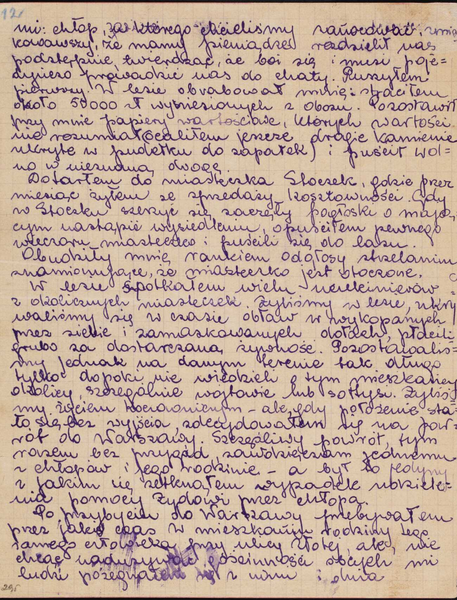 12
mi: chłop, za którego chcieliśmy zanocować, zmiar-
kowawszy, że mamy pieniądze rozdzielił nas
podstępnie, twierdząc, że boi się i musi poje-
dyńczo prowadzić nas do chaty. Ruszyłem
pierwszy. W lesie obrabował mnię: straciłem
około 50000 zł wyniesionych z obozu. Pozostawił
przy mnie papiery wartościowe, których wartości
nie rozumiał (ocaliłem jeszcze drogie kamienie
ukryte w pudełku do zapałek) i puścił wol-
no w nieznaną drogę.
Dotarłem do miasteczka Stoczek, gdzie przez
miesiąc żyłem ze sprzedaży kosztowności. Gdy
w Stoczku szerzyć się zaczęły pogłoski o mają-
cym nastąpić wysiedleniu, opuściłem pewnego
wieczoru miasteczko i puściłem się do lasu.
Obudziły mnię rankiem odgłosy strzelaniny
znamionujące, że miasteczko jest otoczone.
W lesie spotkałem wielu uciekinierów
z okolicznych miasteczek. Żyliśmy w lesie, ukry-
waliśmy się w czasie obław w wykopanych
przez siebie i zamaskowanych dołach, płacili
grubo za dostarczaną żywność. Pozostawaliś-
my jednak na danym terenie tak długo
tylko dopóki nie wiedzieli o tym mieszkańcy
okolicy, szczególnie wójtowie lub sołtys. Żyliś-
my życiem koczowniczym – ale gdy położenie sta-
ło się bez wyjścia, zdecydowałem się na pow-
rót do Warszawy. Szczęśliwy powrót, tym
razem bez przygód, zawdzięczam jednemu
z chłopów i jego rodzinie – a był to jedyny
z jakim się zetknąłem wypadek udziele-
nia pomocy Żydom przez chłopa.
Po przybyciu do Warszawy przebywałem
przez jakiś czas w mieszkaniu rodziny tego
samego człowieka, przy ulicy Złotej, ale, nie
chcąc nadużywać gościnności obcych mi
ludzi pożegnałem się z nimi i dnia